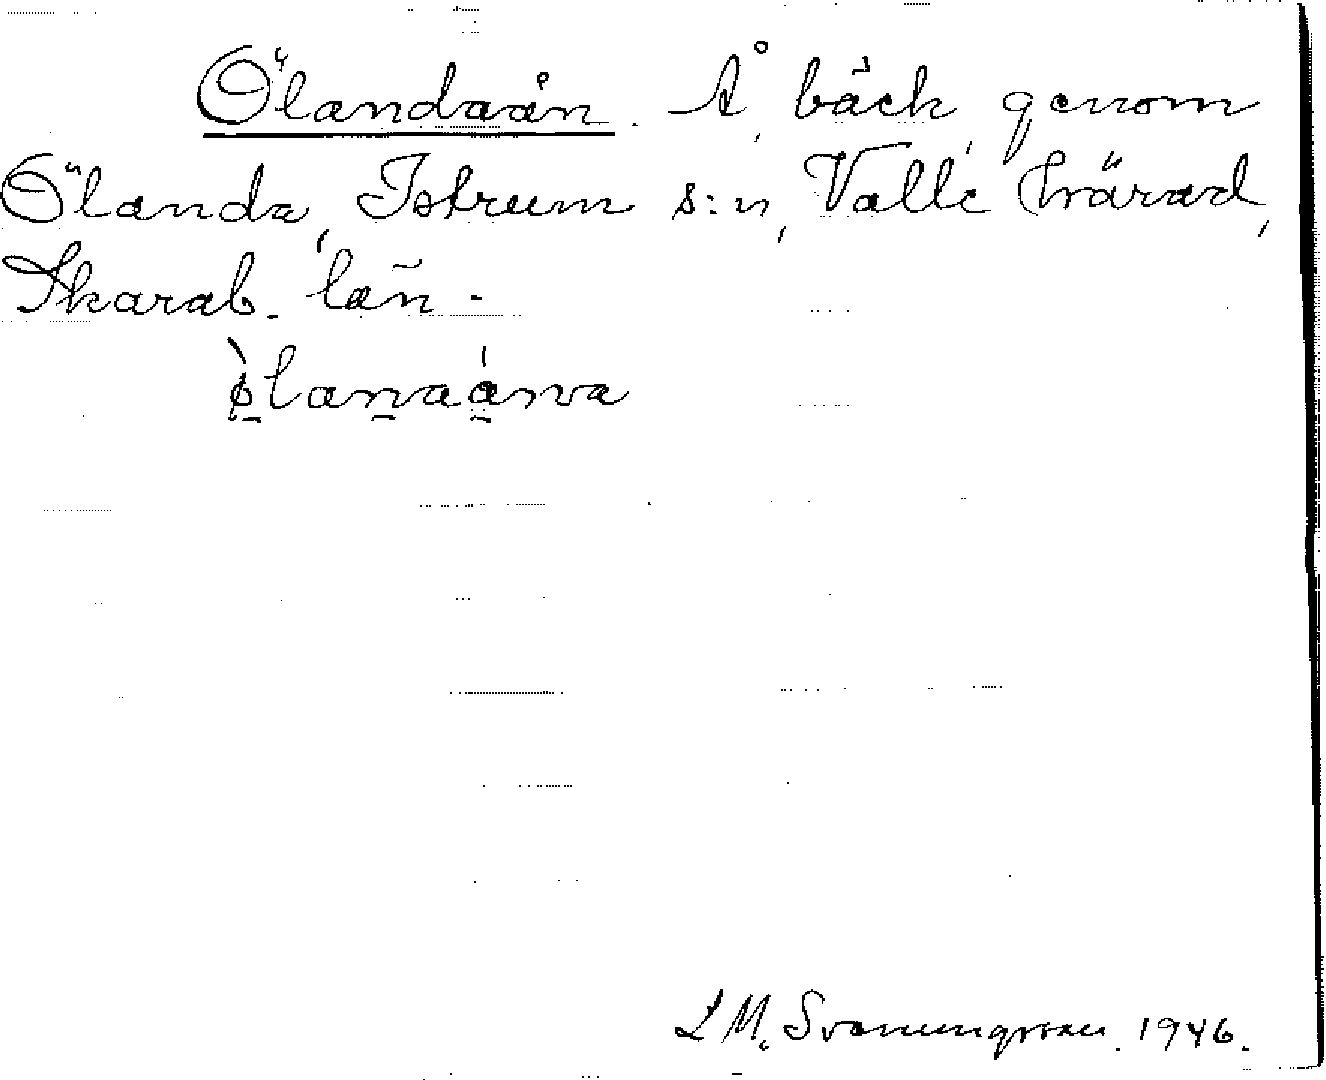 Ölandaån. Å, bäck, genom
Ölanda, Istrum s:n, Valle härad,
Skarab. län.
ø̀lanaánva
L M. Svanungsson. 1946.